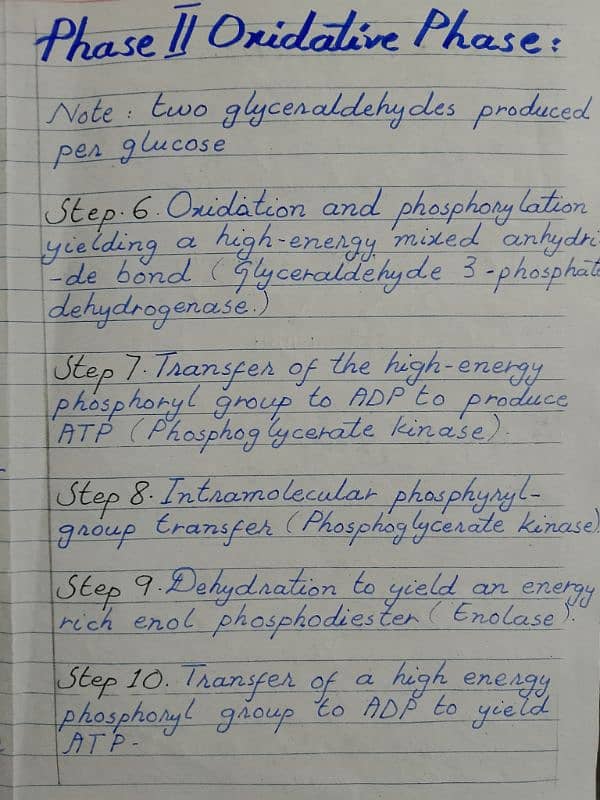 Phase II Oxidative Phase:
Note: two glyceraldehydes produced
per glucose
Step.6. Oxidation and phosphorylation
yielding a high-energy mixed anhydri
-de bond (Glyceraldehyde 3-phosphat
dehydrogenase.)
Step 7. Transfer of the high-energy
phosphoryl group to ADP to produce
ATP (Phosphoglycerate kinase).
Step 8. Intramolecular phosphyryl-
group transfer (Phosphoglycerate kinase)
Step 9. Dehydration to yield an energy
rich enol phosphodiester (Enolase).
Step 10. Transfer of a high energy
phosphoryl group to ADP to yield
ATP-